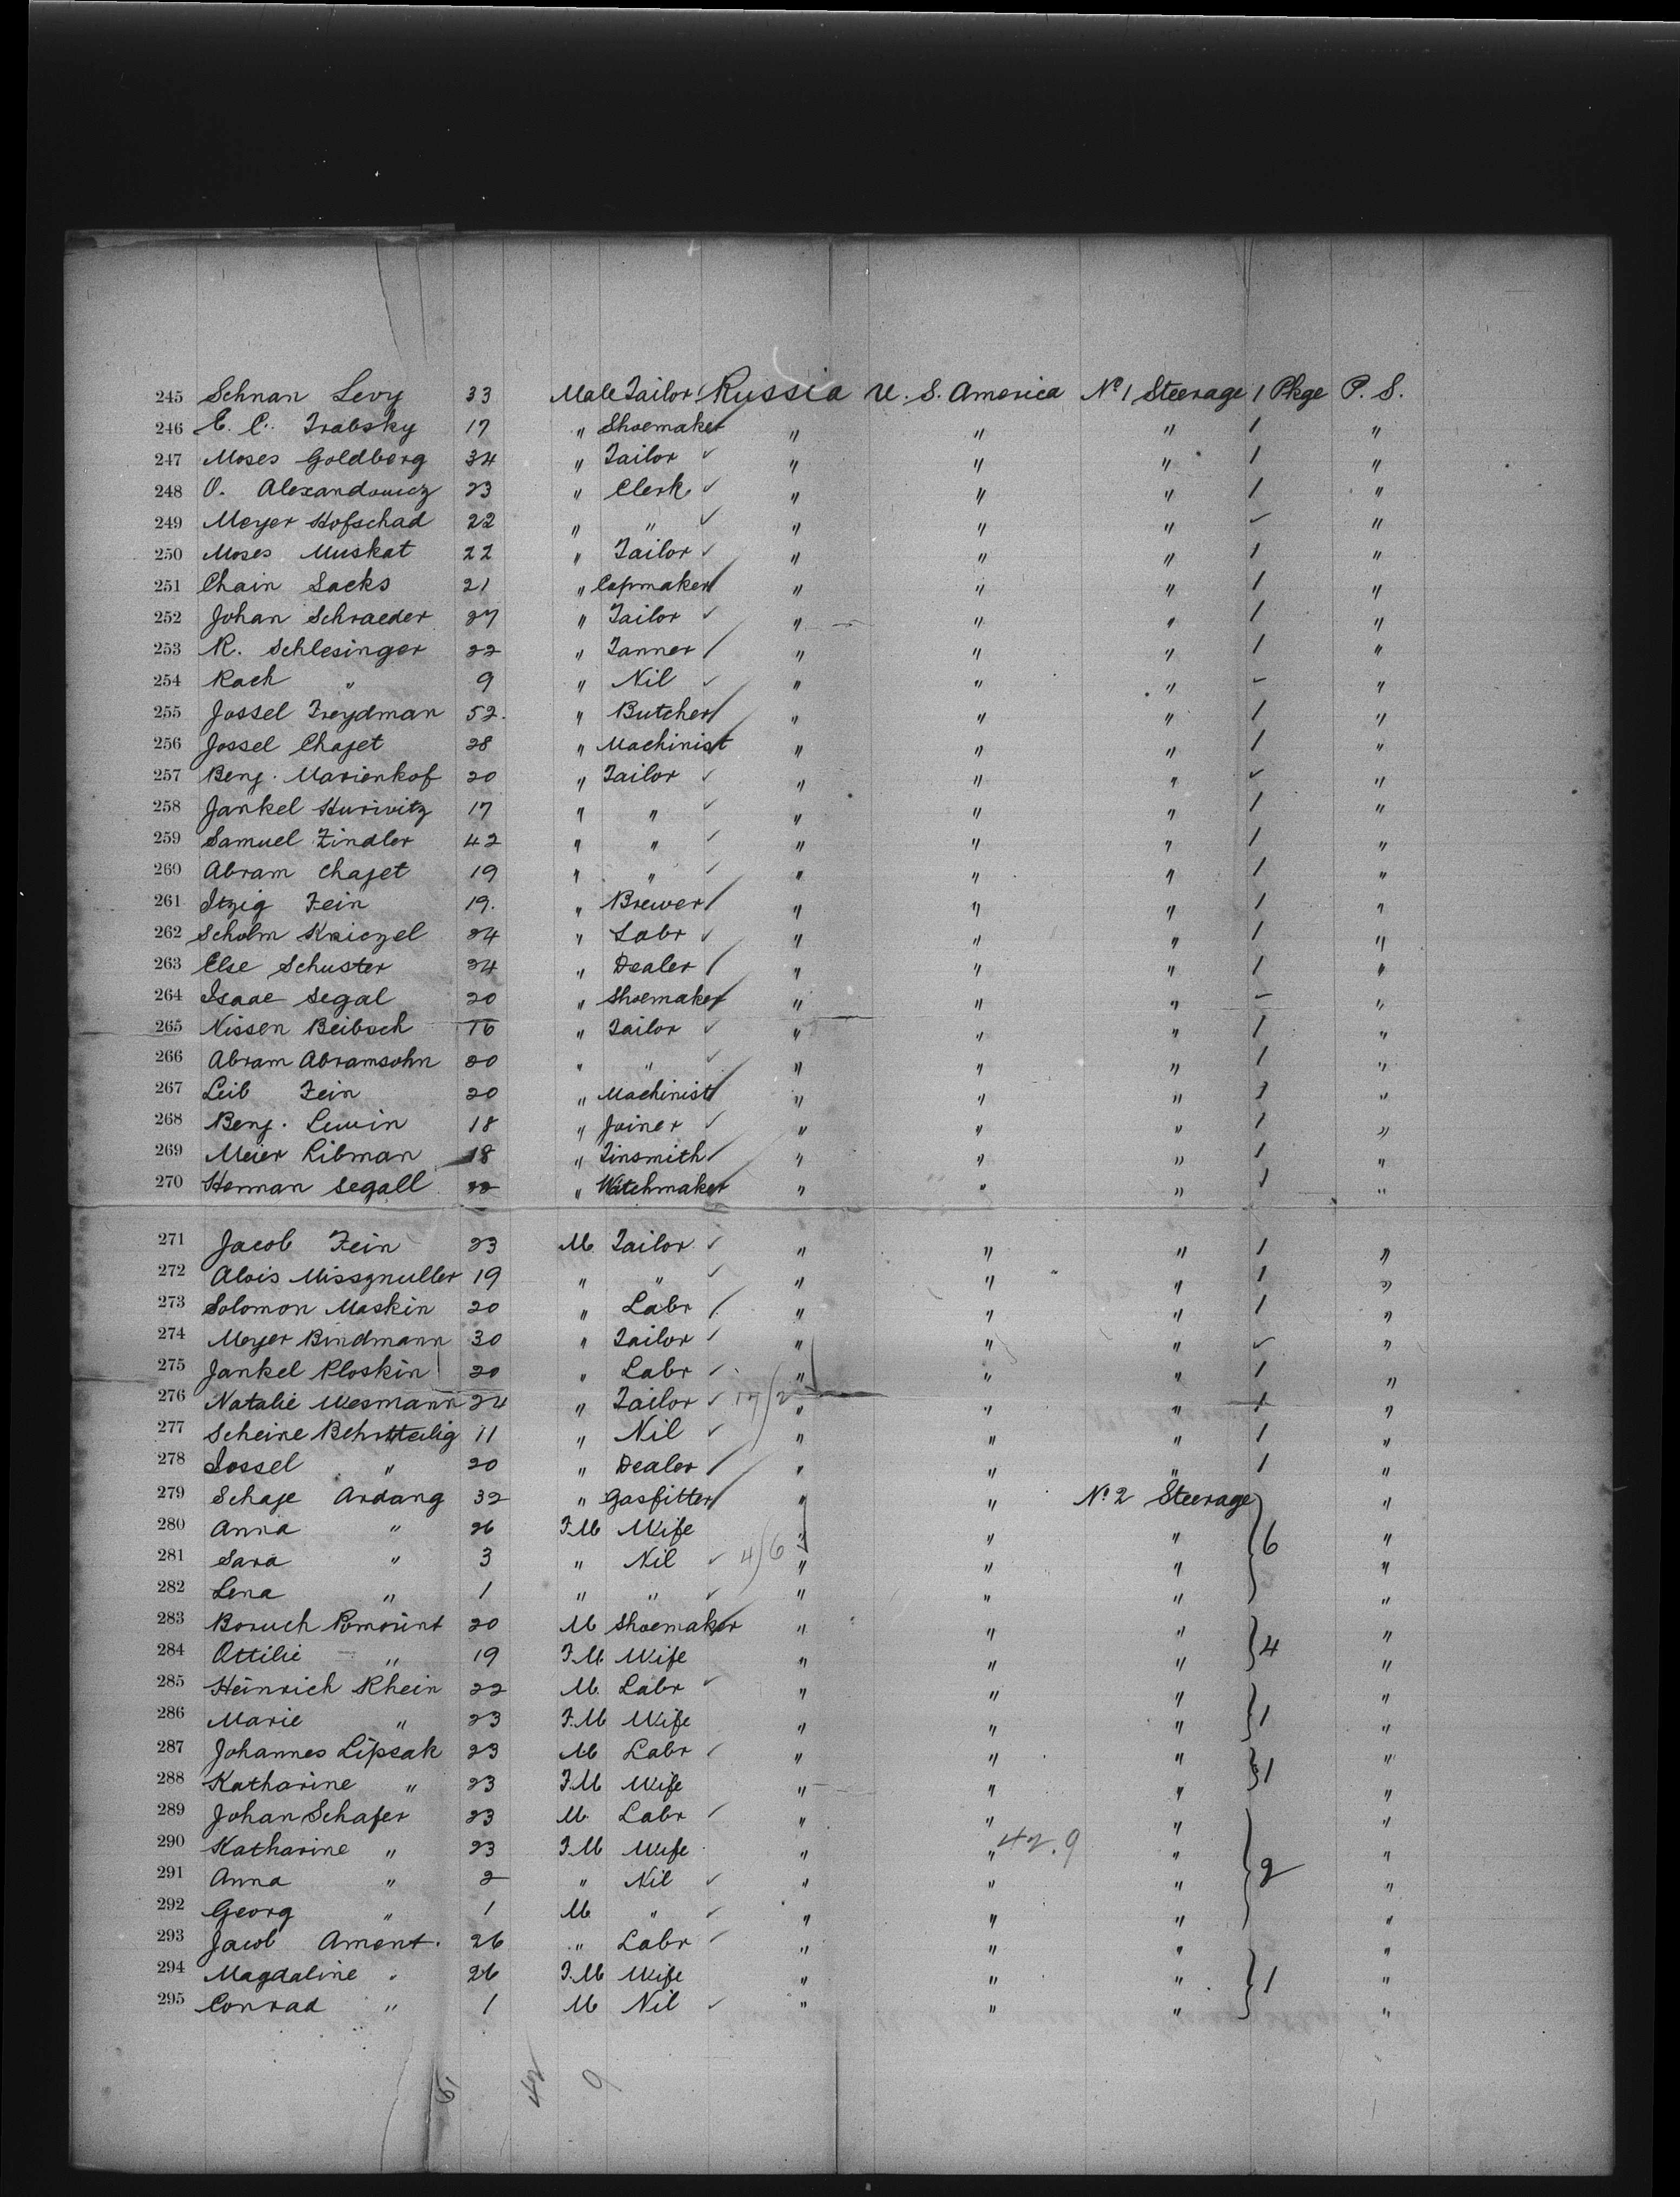 245 Schnan Levy 33 Male Tailor Russia U. S. America No 1 Steerage 1 Pkge P. S.
246 E. C. Trabsky 17 " Shoemaker " " " 1 "
247 Moses Goldberg 34 " Tailor " " " 1 "
248 O. Alexandowicz 23 " Clerk " " " 1 "
249 Meyer Hofschad 22 " " " " " "
250 Moses Muskat 22 " Tailor " " " 1 "
251 Chain Sacks 21 " Capmaker " " " 1 "
252 Johan Schraeder 27 " Tailor " " " 1 "
253 R. Schlesinger 22 " Tanner " " " 1 "
254 Rach " 9 " Nil " " " "
255 Jossel Freydman 52 " Butcher " " " 1 "
256 Jossel Chajet 28 " Machinist " " " 1 "
257 Benj. Marienhof 20 " Tailor " " " "
258 Jankel Hurivitz 17 " " " " " 1 "
259 Samuel Zindler 42 " " " " " 1 "
260 Abram Chajet 19 " " " " " 1 "
261 Itzig Fein 19. " Brewer " " " 1 "
262 Scholm Kriezel 24 " Labr " " " 1 "
263 Else Schuster 24 " Dealer " " " 1 "
264 Isaac Segal 20 " Shoemaker " " " "
265 Nissen Beibsch 16 " Tailor " " " 1 "
266 Abram Abramsohn 20 " " " " " 1 "
267 Leib Fein 20 " Machinist " " " 1 "
268 Benj. Lewin 18 " Joiner " " " 1 "
269 Meier Libman 18 " Tinsmith " " " 1 "
270 Herman Segall 22 " Watchmaker " " " 1 "
271 Jacob Fein 23 M Tailor " " " 1 "
272 Alois 19 " " " " " 1 "
273 Solomon Maskin 20 " Labr " " " 1 "
274 Meyer Bindmann 30 " Tailor " " " "
275 Jankel Ploskin 20 " Labr " " " 1 "
276 Natalie Wesmann 24 " Tailor 17/2 " " " 1 "
277 Scheine 11 " Nil " " " 1 "
278 Jossel " 20 " Dealer " " " 1 "
279 Schaje Ardang 32 " Gasfitter " " No 2 Steerage "
280 Anna " 26 F.M Wife " " " 6 "
281 Sara " 3 " Nil 4/6 " " " "
282 Lena " 1 " " " " " "
283 Boruch 20 M Shoemaker " " " "
284 Ottilie " 19 F.M Wife " " " 4 "
285 Heinrich Rhein 22 M Labr " " " "
286 Marie " 23 F.M Wife " " " 1 "
287 Johannes Lipsak 23 M Labr " " " "
288 Katharine " 23 F.M Wife " " " 1 "
289 Johan Schafer 23 M Labr " " " "
290 Katharine " 23 F.M Wife " " 42.9 " "
291 Anna " 2 " Nil " " " 2 "
292 Georg " 1 M " " " " "
293 Jacob Ament 26 " Labr " " " "
294 Magdaline " 26 F.M Wife " " " 1 "
295 Conrad " 1 M Nil " " " "
42 9